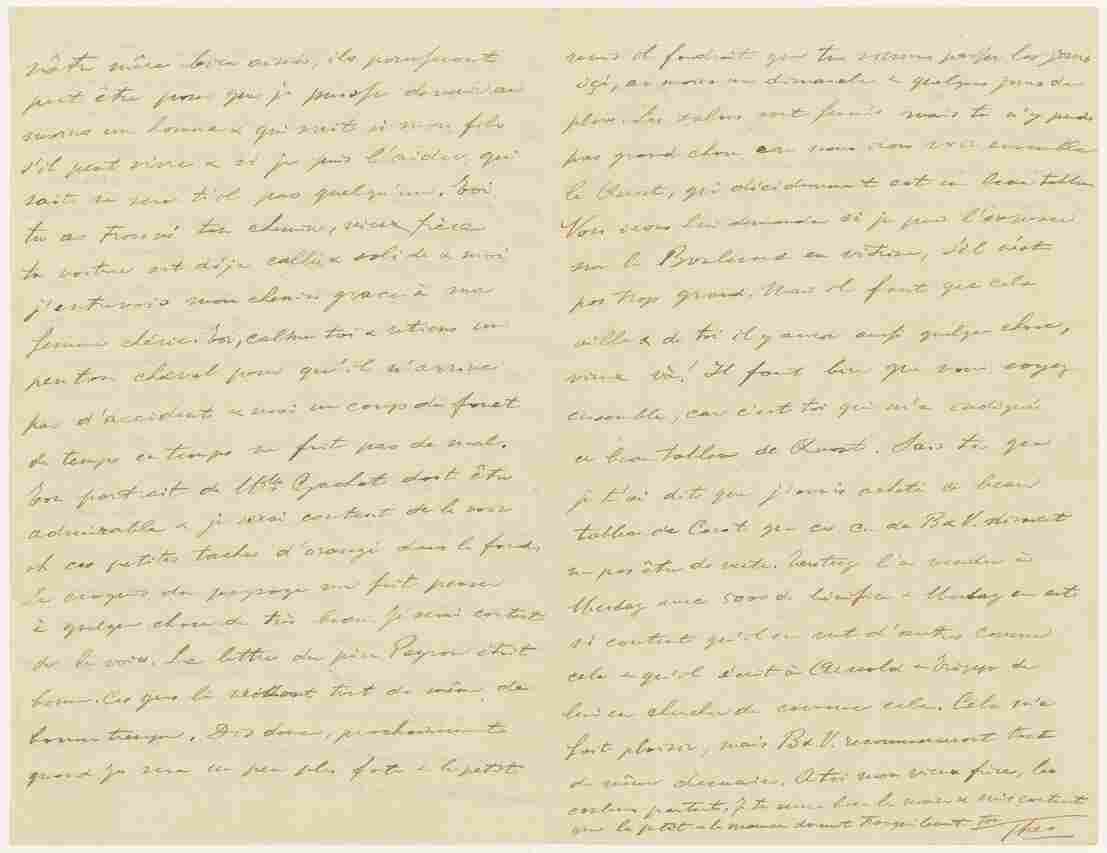 nôtre mère bien aimée, ils pourront
peut être pour que je puisse devenir au
moins un homme & qui sait si mon fils
s'il peut vivre & si je puis l'aider, qui
sait ne sera t'il pas quelqu'un. Toi,
tu as trouvé ton chemin, vieux frère
ta voiture est déjà callée & solide & moi
j'entrevois mon chemin grace à ma
femme chérie. Toi, calme toi & retiens un
peu ton cheval pour qu'il n'arrive
pas d'accident & moi un coup de fouet
de temps en temps ne fait pas de mal.
Ton portrait de Mlle Gachet doit être
admirable & je serai content de le voir
et ces petites taches d'orangé dans le fond.
Le croquis du paysage me fait penser
à quelque chose de très beau. Je serai content
de le voir. La lettre du père Peyron était
bonne. Ces gens là tout de même de
. Dis donc, prochainement
quand Jo sera un peu plus forte & le petit
aussi il faudrait que tu viennes passer les jours
ici, au moins un dimanche & quelques jours de
plus. Les salons sont fermés mais tu n'y perds
pas grand chose car nous irons voir ensemble
le Quost, qui décidemment est un beau tableau
Vous irons lui demander si je peux l'exposer
sur le Boulevard en vitrine, s'il n'est
pas trop grand. Mais il faut que cela
aille & de toi il y aura aussi quelque chose,
vieux va! Il faut bien que vous soyez
ensemble, car c'est toi qui m'a indiqué
ce beau tableau de Quost. Sais tu que
je t'ai dit que j'avais acheté ce beau
tableau de Corot que ces c. de B&V. disaient
ne pas être de vente. Tersteeg l'a vendu à
Mesdag avec 5000 de bénéfice & Mesdag en est
si content qu'il en veut d'autres comme
cela & qu'il écrit à Arnold & Tripp de
lui en chercher de comme cela. Cela m'a
fait plaisir, mais B&V. recommenceront tout
de même demain. A toi mon vieux frère, les
partent. Je te serre bien la main & suis content
que le petit & la maman dorment tranquillement. Theo